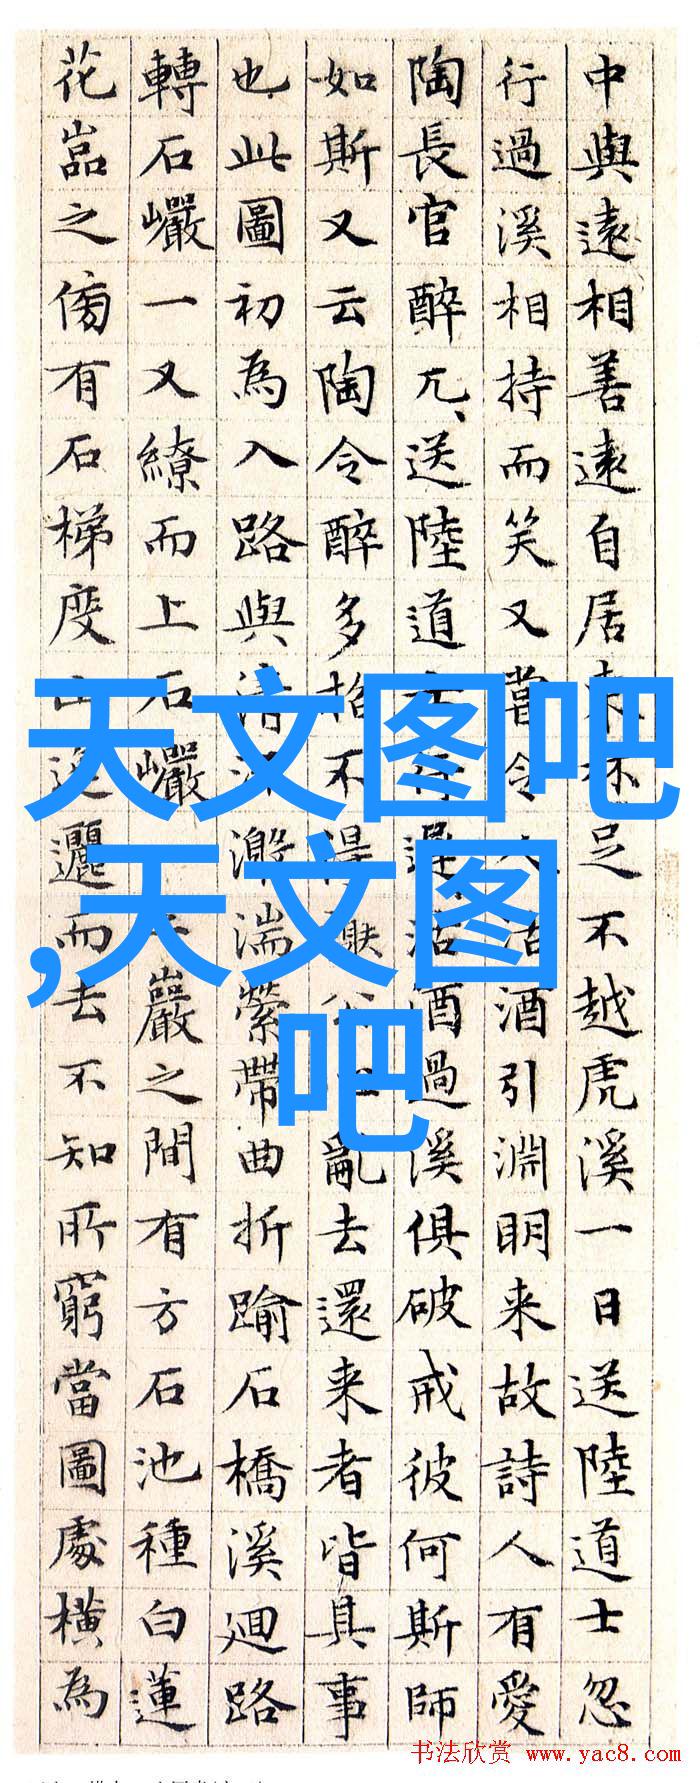 中與遠相善遠自居東林足不越虎溪一日送陸道士忽
行過溪相持而笑又嘗令人沽酒引淵明来故詩人有愛
陶長官醉兀、送陸道士行遲沽酒過溪俱破戒彼何斯師
如斯又云陶令醉多招不得謝公心亂去還来者皆其事
也此圖初為入路與清流激湍縈帶曲折踰石橋溪迴路
轉石巗一又繚而上石巗巖之間有方石池種白蓮
花嵓之傍有石梯度山迤邐而去不知所窮當圖處橫為
天文图吧
,天文图
吧
书法欣赏 www.yac8.com